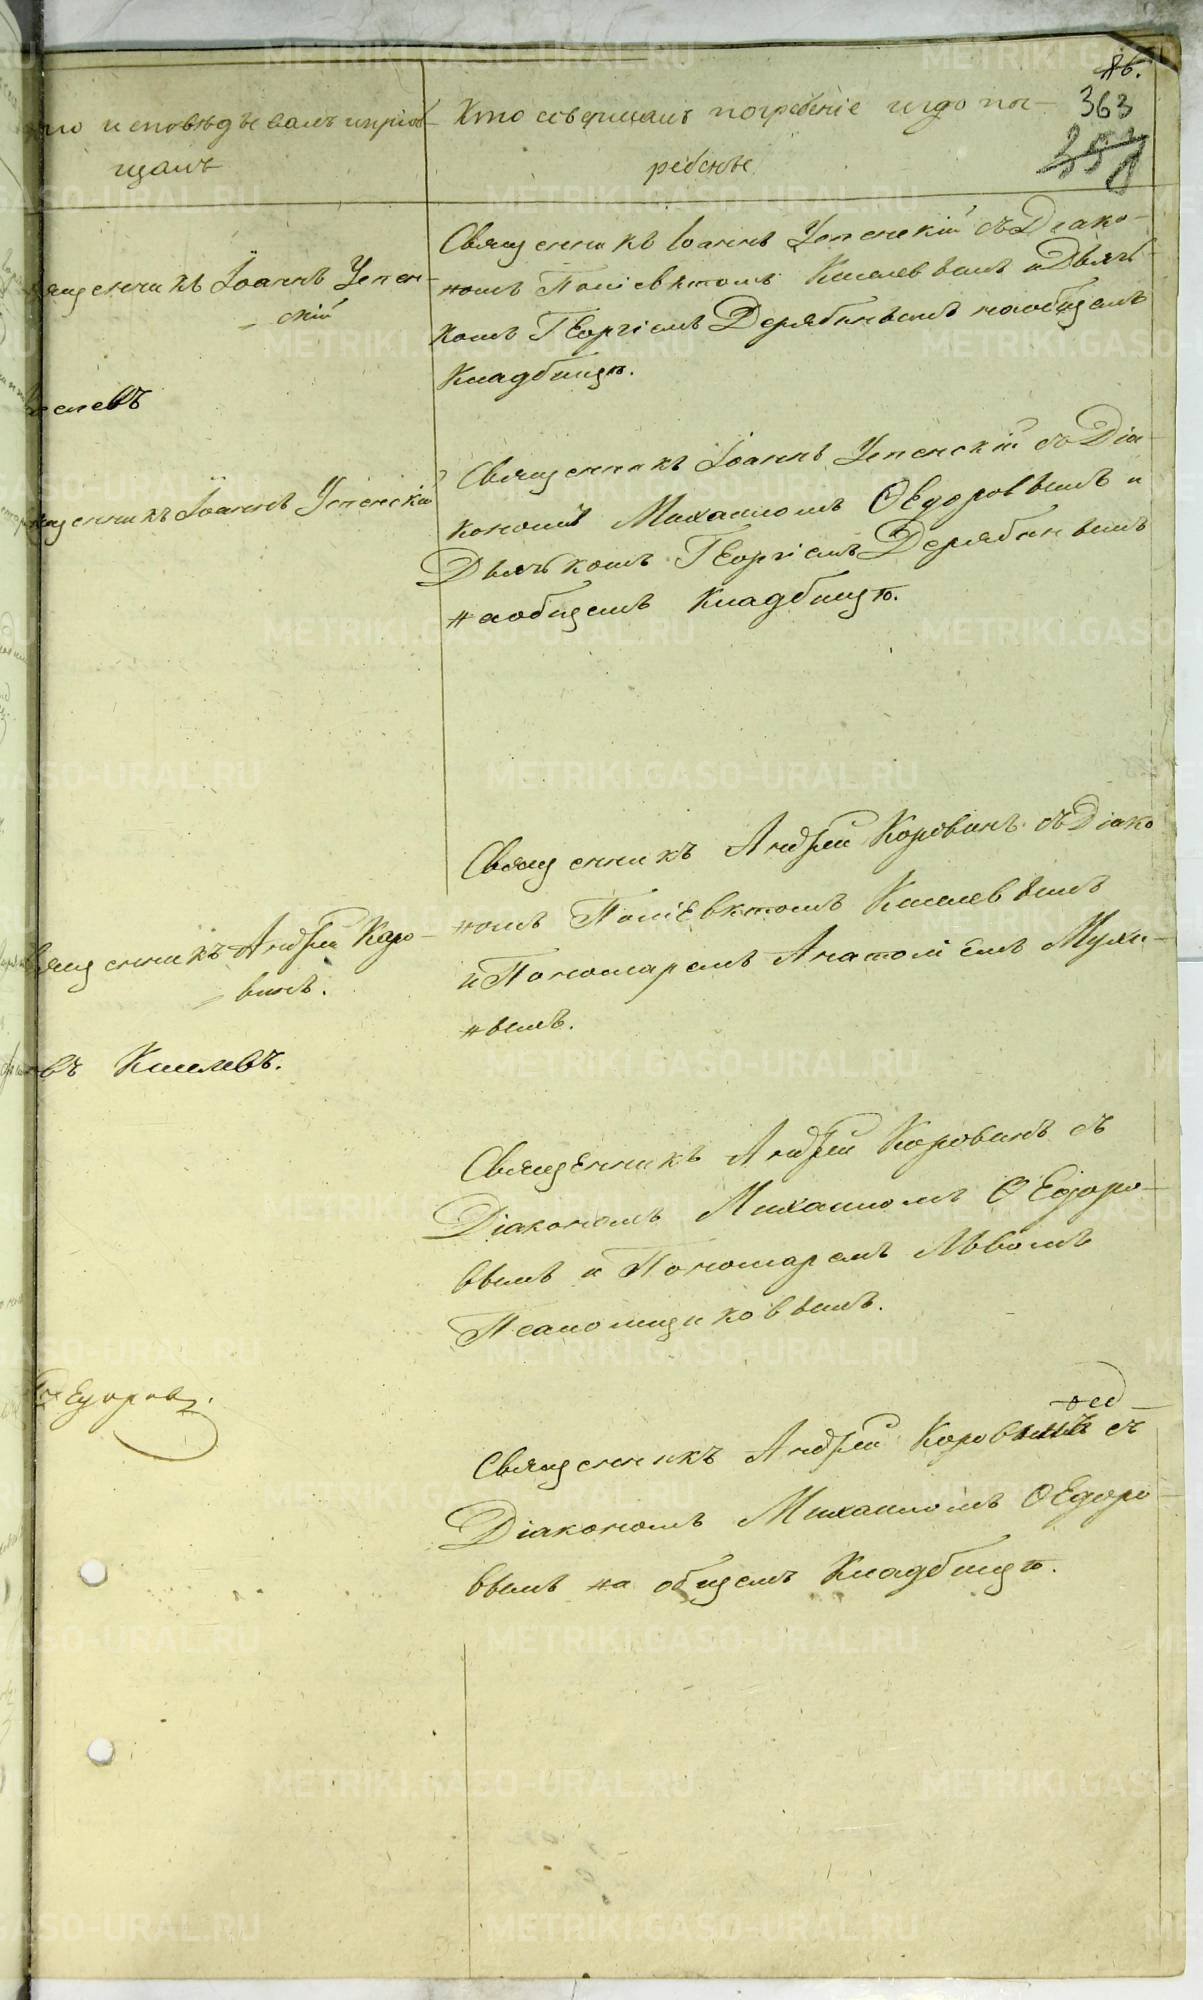 86.
363
351
кто исповѣдывалъ и пріоб-
щалъ
Кто совершалъ погребеніе и гдѣ по-
гребены
Священникъ Іоаннъ Успен-
скій
Священникъ Іоаннъ Успенскій съ Діако-
номъ Поліевктомъ Киселевымъ и Дьяч-
комъ Георгіемъ Дерябинымъ на общемъ
Кладбищѣ.
Киселевъ
Священникъ Іоаннъ Успенскій
Священникъ Іоаннъ Успенскій съ Діа-
кономъ Михаиломъ Ѳедоровымъ и
Дьячкомъ Георгіемъ Дерябинымъ
на общемъ Кладбищѣ.
Священникъ Андрей Коро-
винъ.
Священникъ Андрей Коровинъ съ Діако
номъ Поліевктомъ Киселевымъ
и Пономаремъ Анатоліемъ Мухи-
нымъ.
въ Киселевъ.
Священникъ Андрей Коровинъ съ
Діакономъ Михаиломъ Ѳедоро-
вымъ и Пономаремъ Львомъ
Псаломщиковымъ.
Ѳедоровъ.
Священникъ Андрей Коровинъ съ
Діакономъ Михаиломъ Ѳедоро-
вымъ на общемъ Кладбищѣ.
METRIKI.GASO-URAL.RU